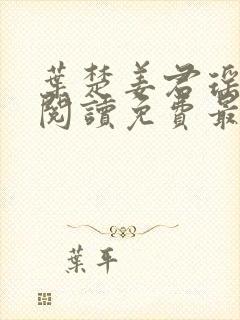 葉楚姜君瑤
閱讀免費最
葉平